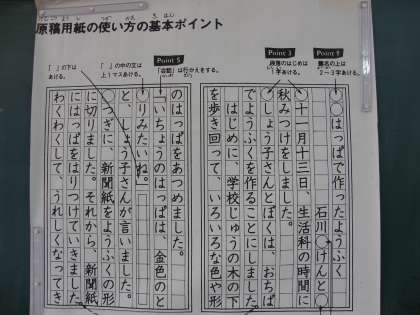 原稿用紙の使い方の基本ポイント
Point 1
題名の上は
2〜3字あける。
Point 3
段落のはじめは
1字あける。
Point 5
「会話」は行がえをする。
「 」の中の文は
上1マスあける。
「 」の下は
あける。
はっぱで作ったようふく
石川 けんと
十一月十三日、生活科の時間に
秋みつけをしました。
しょう子さんとぼくは、おちば
でようふくを作ることにしました。
はじめに、学校じゅうの木の下
を歩き回って、いろいろな色や形
のはっぱをあつめました。
「いちょうのはっぱは、金色のと
りみたいね。」
と、しょう子さんが言いました。
つぎに、新聞紙をようふくの形
に切りました。それから、新聞紙
にはっぱをはりつけていきました。
わくわくして、うれしくなってき